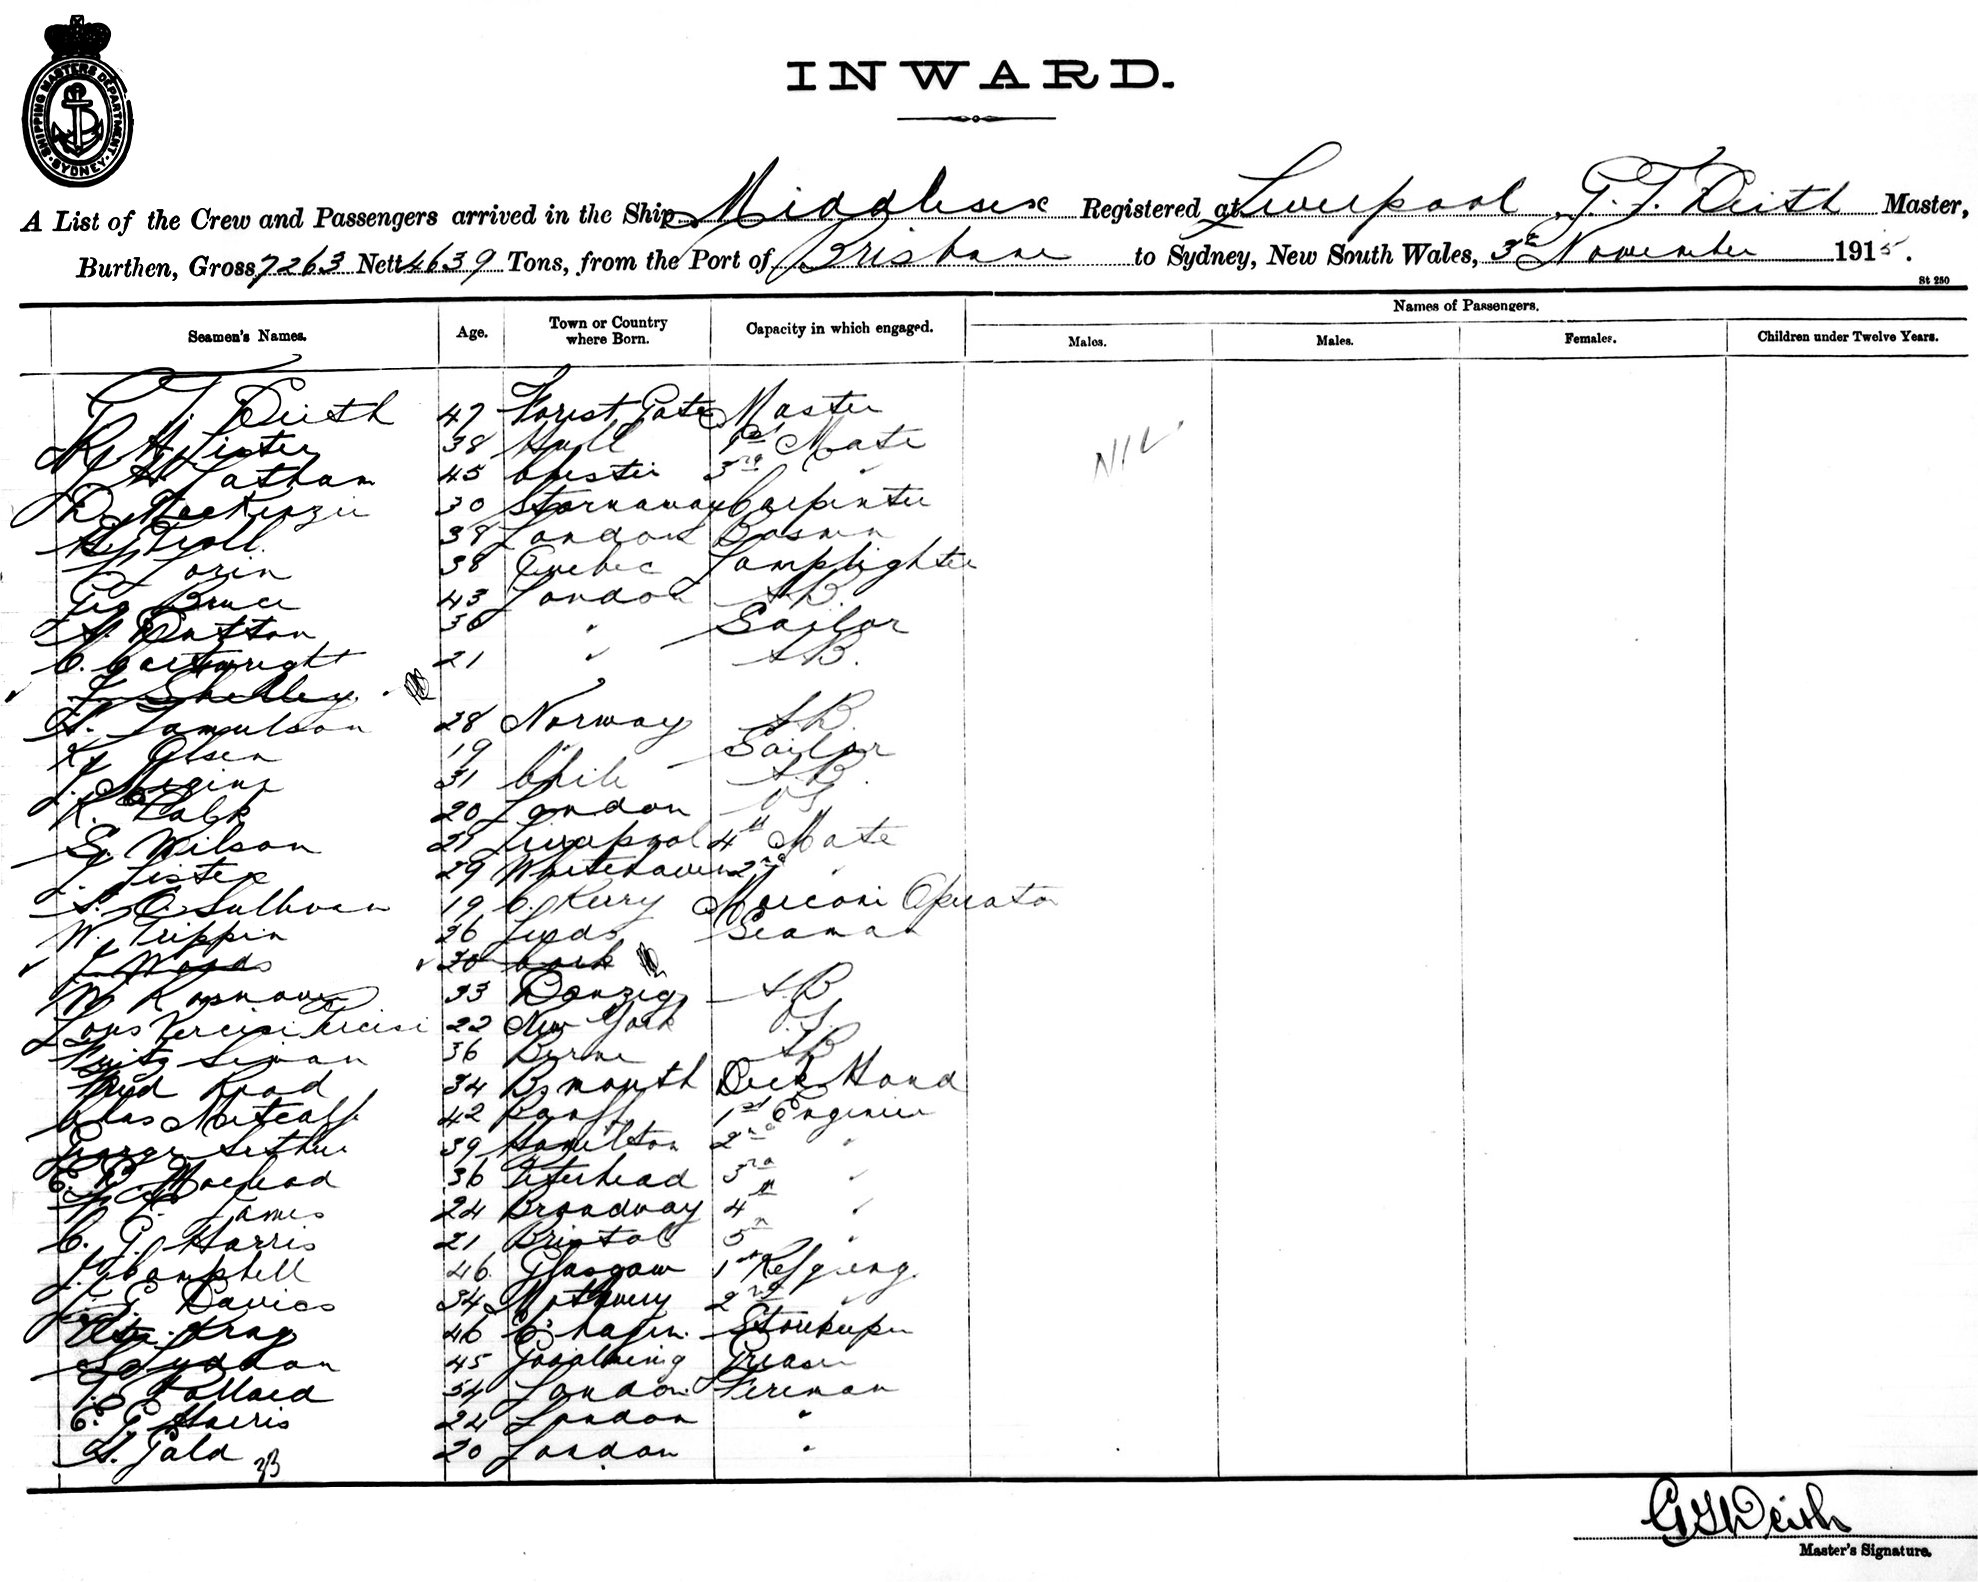 SHIPPING MASTERS DEPARTMENT
SYDNEY
INWARD.
A List of the Crew and Passengers arrived in the Ship Middlesex Registered at Liverpool G. T. Deith Master,
Burthen, Gross 7263 Nett 4639 Tons, from the Port of Brisbane to Sydney, New South Wales, 3rd November 1915.
St 250
Seamen's Names. Age. Town or Country where Born. Capacity in which engaged. Names of Passengers.
Males. Males. Females. Children under Twelve Years.
G. T. Deith 47 Forest Gate Master
R. H. Lister 38 Hull 1st Mate
NIL
Latham 45 Chester 3rd "
D. MacKenzie 30 Stornaway Carpenter
38 London Bosun
Lorin 38 Quebec Lamplighter
Geo Bruce 43 London A.B.
H. Button 36 " Sailor
C. Cartwright 21 " A.B.
F. Shelley "
A. Samuelson 28 Norway A.B.
K. Olsen 19 " Sailor
31 Chile A.B.
K. 20 London O.S.
S. Wilson 21 Liverpool 4th Mate
J. Lister 29 Whitehaven 2nd "
S. O. Sullivan 19 C. Kerry Marconi Operator
W. Trippin 26 Leeds Seaman
J. Woods 30 Cork
W. 33 Danzig A.B.
Lous 22 New York O.S.
Fritz Siman 36 Berne A.B.
Fred Road 34 B'mouth Deck Hand
Chas Metcalfe 42 Banff 1st Engineer
George 39 Hamilton 2nd "
36 Peterhead 3rd "
James 24 Broadway 4th "
C. G. Harris 21 Bristol 5th "
J. Campbell 46 Glasgow 1st Refgreng
J. G. Davies 34 2nd "
Krag 46 C'hagen Storekeeper
Lyddon 45 Godalming Greaser
T. Pollard 54 London Fireman
C. G. Harris 24 London "
H. Gald 20 London "
33
G T Deith
Master's Signature.